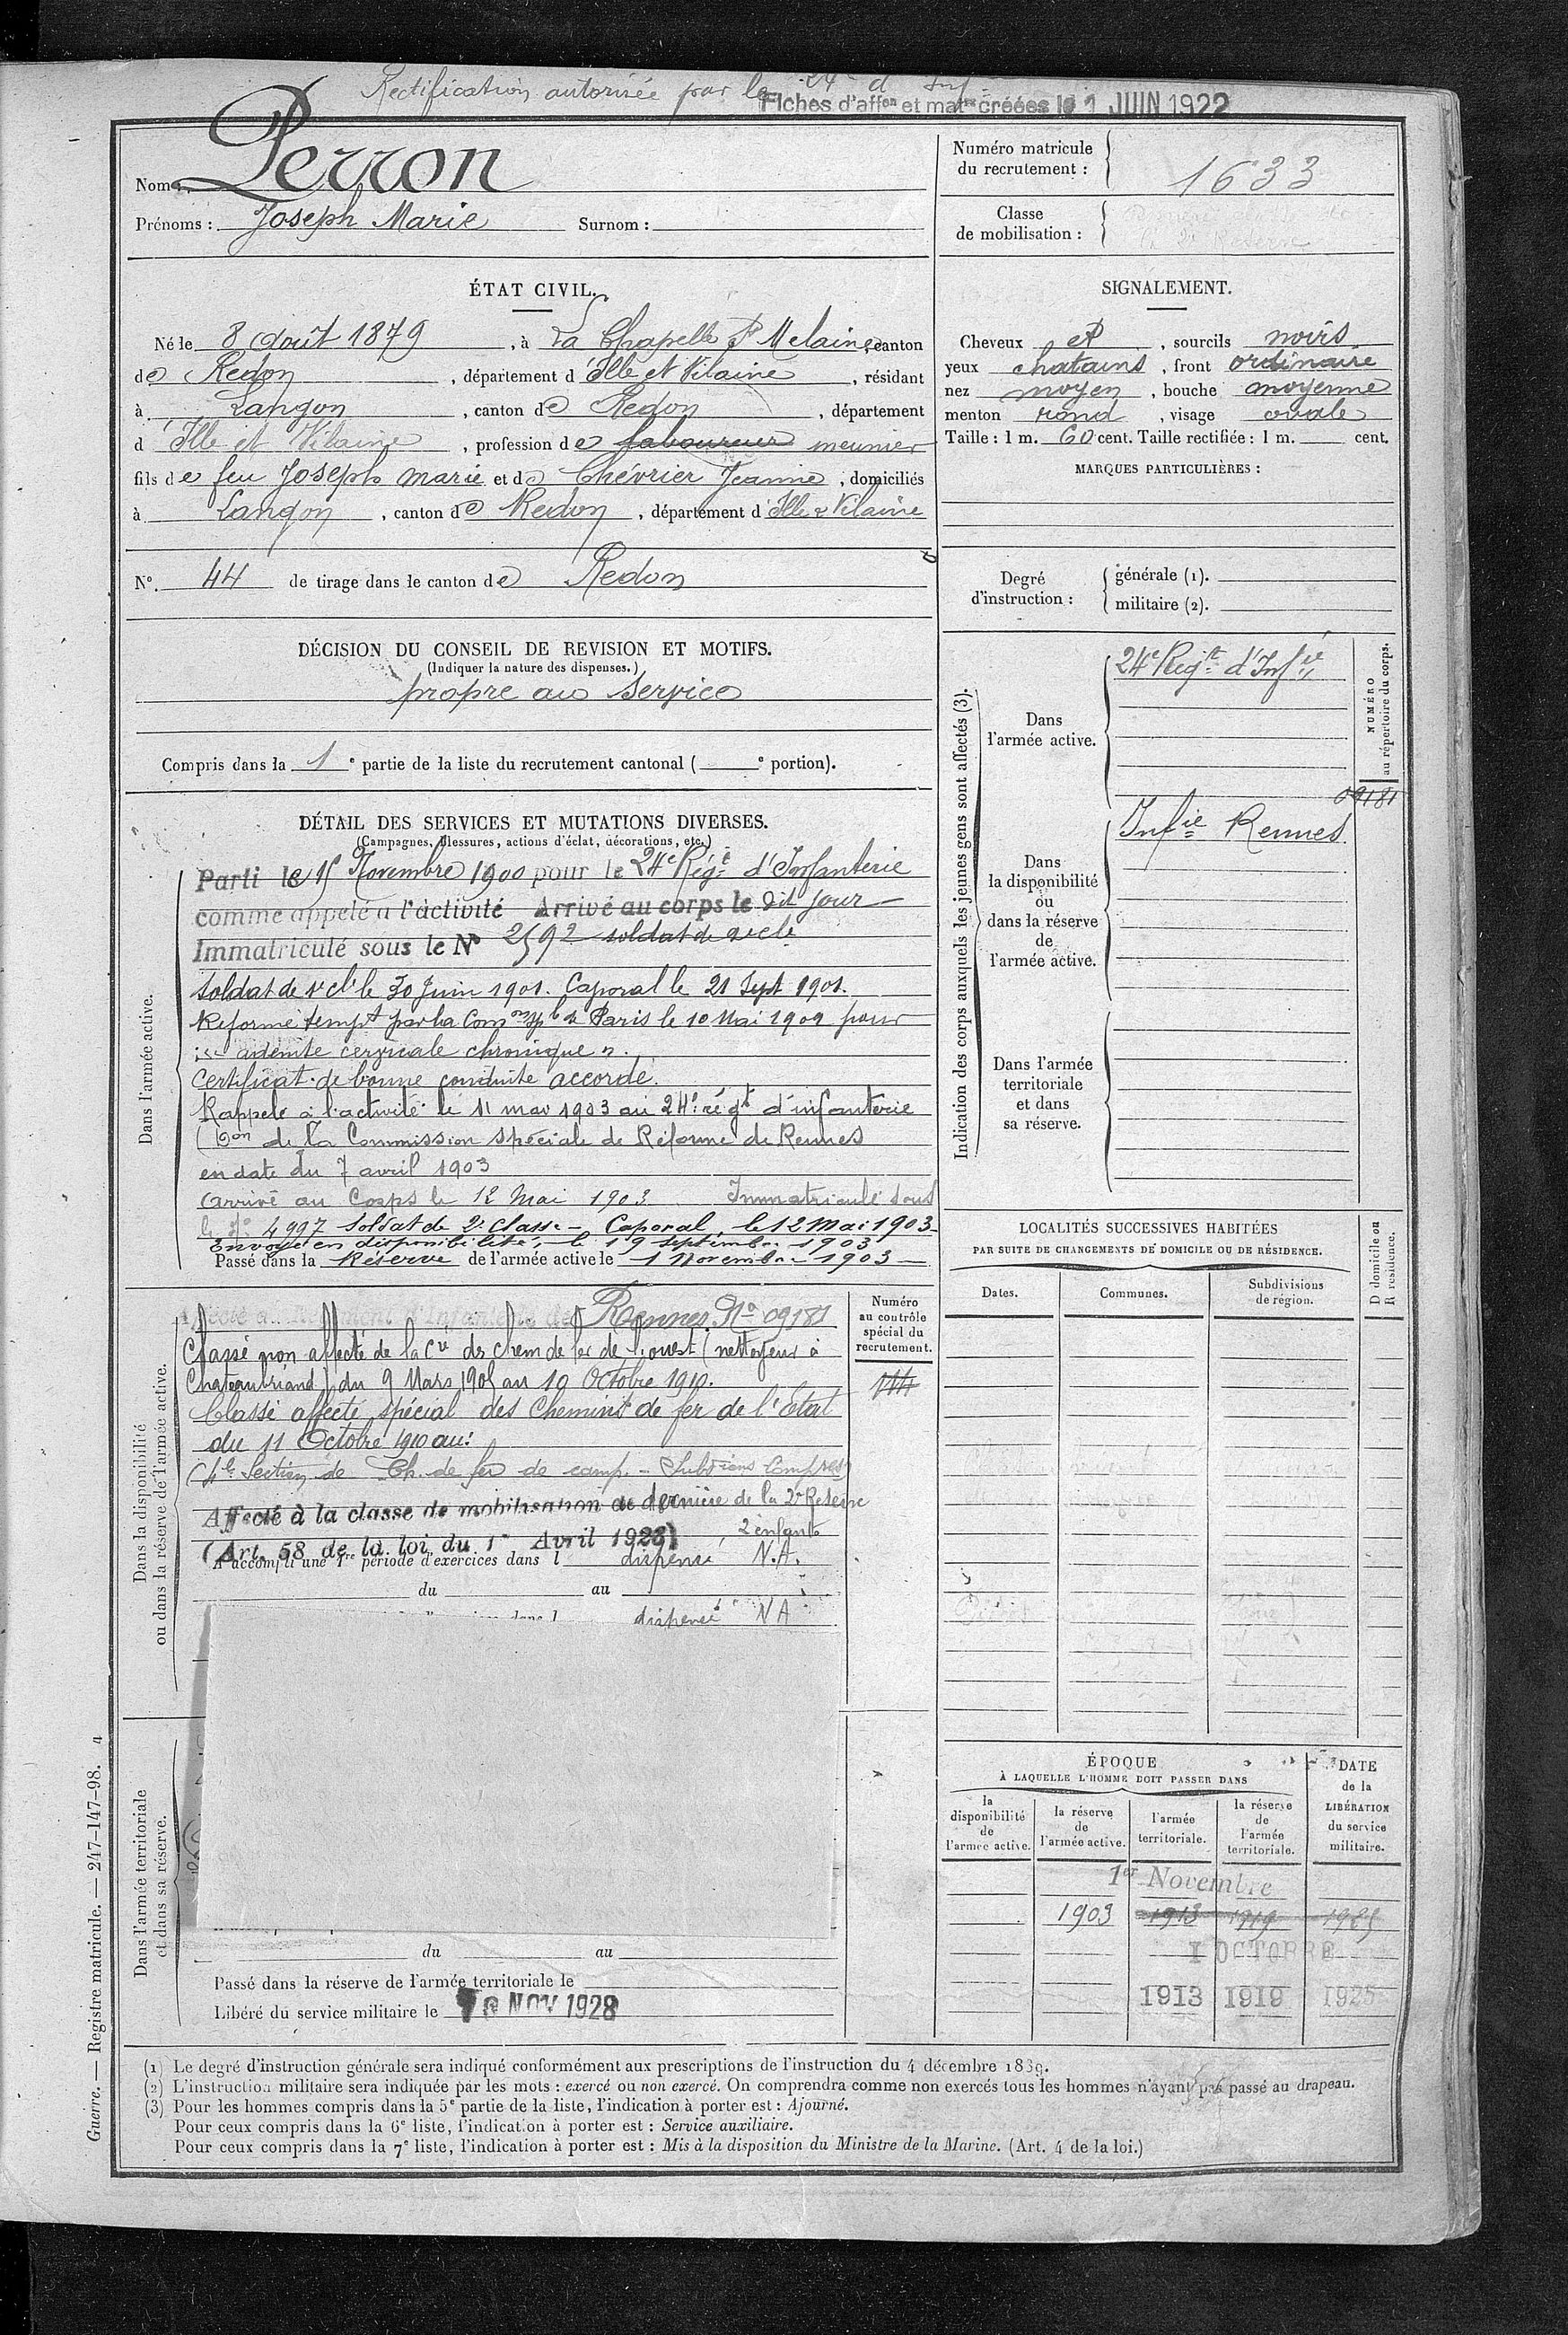 Rectification autorisée par le 24e d' Inf
Fiches d'affon et matre créées le 1 JUIN 1922
Nom : Perron
Prénoms : Joseph Marie Surnom :
Numéro matricule
du recrutement : 1633
Classe
de mobilisation :
ÉTAT CIVIL.
Né le 8 Août 1879, à La Chapelle St Melaine, canton
de Redon, département d Ille et Vilaine, résidant
à Langon, canton de Redon, département
d Ille et Vilaine, profession de laboureur meunier
fils de feu Joseph Marie et de Chévrier Jeanne, domiciliés
à Langon, canton de Redon, département d Ille & Vilaine
No. 44 de tirage dans le canton de Redon
SIGNALEMENT.
Cheveux et, sourcils noirs
yeux chatains, front ordinaire
nez moyen, bouche moyenne
menton rond, visage ovale
Taille : 1 m. 60 cent. Taille rectifiée : 1 m. cent.
MARQUES PARTICULIÈRES :
Degré
d'instruction :
générale (1).
militaire (2).
DÉCISION DU CONSEIL DE REVISION ET MOTIFS.
(Indiquer la nature des dispenses.)
propre au service
Compris dans la 1e partie de la liste du recrutement cantonal ( e portion).
DÉTAIL DES SERVICES ET MUTATIONS DIVERSES.
(Campagnes, blessures, actions d'éclat, décorations, etc.)
Dans l'armée active.
Parti le 15 Novembre 1900 pour le 24e Régt d'Infanterie
comme appelé à l'activité Arrivé au corps le dit jour
Immatriculé sous le No 2592 soldat de 2e cl.
Soldat de 1e cl le 30 Juin 1901. Caporal le 21 Sept 1901.
Réformé tempt par la Comon sple de Paris le 10 Mai 1902 pour
« adénite cervicale chronique ».
Certificat de bonne conduite accordé.
Rappelé à l'activité le 11 mai 1903 au 24e régt d'infanterie
(Don de la Commission spéciale de Réforme de Rennes
en date du 7 avril 1903
Arrivé au Corps le 12 Mai 1903 Immatriculé sous
le No 4997 Soldat de 2e Classe - Caporal le 12 Mai 1903
Envoyé en disponibilité, le 19 septembre 1903
Passé dans la Réserve de l'armée active le 1 Novembre 1903
Indication des corps auxquels les jeunes gens sont affectés (3).
NUMÉRO
au répertoire du corps.
Dans
l'armée active.
24e Régt d'Infie
09181
Dans
la disponibilité
ou
dans la réserve
de
l'armée active.
Infie Rennes
Dans l'armée
territoriale
et dans
sa réserve.
Dans la disponibilité
ou dans la réserve de l'armée active.
Affecté au Régiment d'Infanterie de Rennes No 09181
Classé non affecté de la Cie des chem de fer de l'ouest (nettoyeur à
Chateaubriand) du 9 Mars 1905 au 10 Octobre 1910.
Classé affecté spécial des Chemins de fer de l'État
du 11 Octobre 1910 au :
(4e Section de Ch. de fer de camp. - Subdions Complres)
Affecté à la classe de mobilisation de dernière de la 2e Réserve
(Art. 58 de la loi du 1er Avril 1923) 2 enfants
A accompli une 1re période d'exercices dans l dispensé N.A.
du au
dispensé N A
Numéro
au contrôle
spécial du
recrutement.
144
LOCALITÉS SUCCESSIVES HABITÉES
PAR SUITE DE CHANGEMENTS DE DOMICILE OU DE RÉSIDENCE.
D domicile ou
R résidence.
Dates. Communes. Subdivisions
de région.
Dans l'armée territoriale
et dans sa réserve.
du au
Passé dans la réserve de l'armée territoriale le
Libéré du service militaire le 10 NOV 1928
ÉPOQUE
À LAQUELLE L'HOMME DOIT PASSER DANS
DATE
de la
LIBÉRATION
du service
militaire.
la
disponibilité
de
l'armée active.
la réserve
de
l'armée active.
l'armée
territoriale.
la réserve
de
l'armée
territoriale.
1er Novembre
1903 1913 1919 1925
1 OCTOBRE
1913 1919 1925
(1) Le degré d'instruction générale sera indiqué conformément aux prescriptions de l'instruction du 4 décembre 1889.
(2) L'instruction militaire sera indiquée par les mots : exercé ou non exercé. On comprendra comme non exercés tous les hommes n'ayant pas passé au drapeau.
(3) Pour les hommes compris dans la 5e partie de la liste, l'indication à porter est : Ajourné.
Pour ceux compris dans la 6e liste, l'indication à porter est : Service auxiliaire.
Pour ceux compris dans la 7e liste, l'indication à porter est : Mis à la disposition du Ministre de la Marine. (Art. 4 de la loi.)
Guerre. — Registre matricule. — 247-147-98.